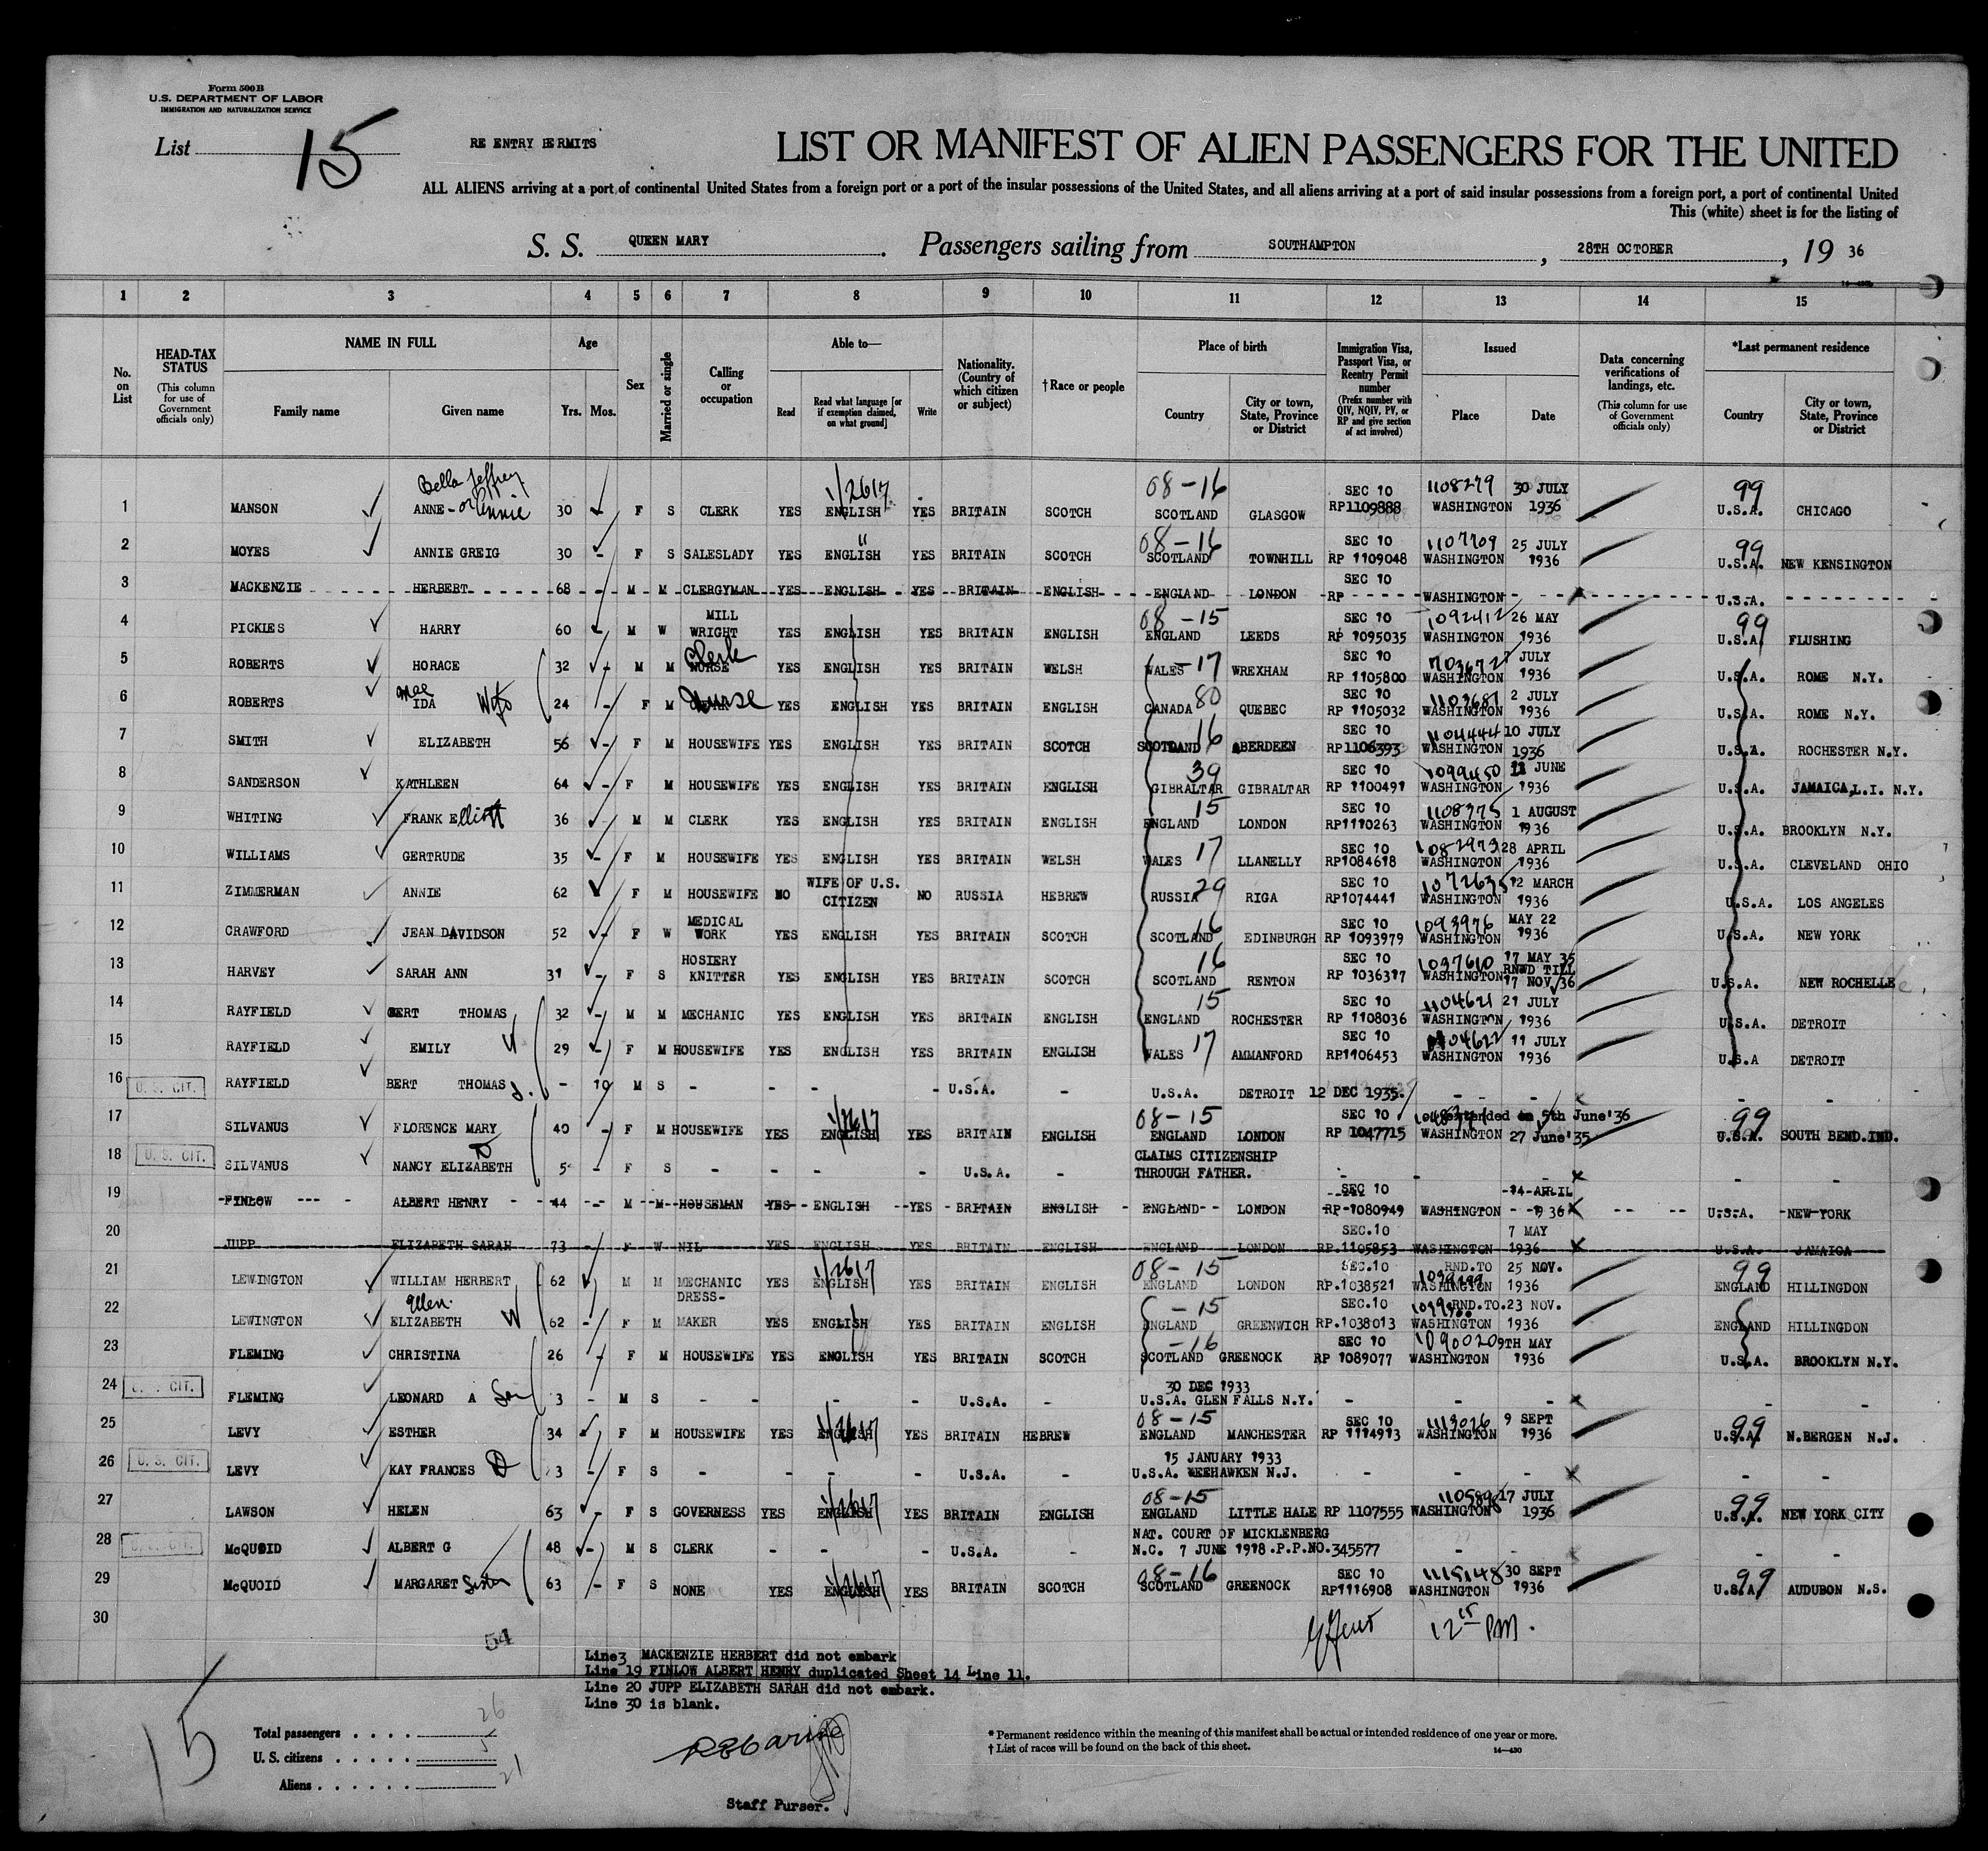 Form 500B
U.S. DEPARTMENT OF LABOR
IMMIGRATION AND NATURALIZATION SERVICE
List 15
RE ENTRY PERMITS
LIST OR MANIFEST OF ALIEN PASSENGERS FOR THE UNITED
ALL ALIENS arriving at a port of continental United States from a foreign port or a port of the insular possessions of the United States, and all aliens arriving at a port of said insular possessions from a foreign port, a port of continental United
This (white) sheet is for the listing of
S. S. QUEEN MARY. Passengers sailing from SOUTHAMPTON, 28TH OCTOBER, 19 36
1 2 3 4 5 6 7 8 9 10 11 12 13 14 15
No. on List
HEAD-TAX STATUS (This column for use of Government officials only)
NAME IN FULL Family name Given name
Age Yrs. Mos.
Sex
Married or single
Calling or occupation
Able to— Read Read what language [or if exemption claimed, on what ground] Write
Nationality. (Country of which citizen or subject)
†Race or people
Place of birth Country City or town, State, Province or District
Immigration Visa, Passport Visa, or Reentry Permit number (Prefix number with QIV, NQIV, PV, or RP and give section of act involved)
Issued Place Date
Data concerning verifications of landings, etc. (This column for use of Government officials only)
*Last permanent residence Country City or town, State, Province or District
1 MANSON Bella Jeffrey ANNE - or Annie 30 F S CLERK YES ENGLISH 1/2617 YES BRITAIN SCOTCH 08-16 SCOTLAND GLASGOW SEC 10 RP1109888 1108279 WASHINGTON 30 JULY 1936 99 U.S.A. CHICAGO
2 MOYES ANNIE GREIG 30 - F S SALESLADY YES ENGLISH " YES BRITAIN SCOTCH 08-16 SCOTLAND TOWNHILL SEC 10 RP 1109048 1107709 WASHINGTON 25 JULY 1936 99 U.S.A. NEW KENSINGTON
3 MACKENZIE HERBERT 68 - M M CLERGYMAN YES ENGLISH YES BRITAIN ENGLISH ENGLAND LONDON SEC 10 RP WASHINGTON U.S.A.
4 PICKLES HARRY 60 M W MILL WRIGHT YES ENGLISH YES BRITAIN ENGLISH 08-15 ENGLAND LEEDS SEC 10 RP 1095035 1092412 WASHINGTON 26 MAY 1936 99 U.S.A. FLUSHING
5 ROBERTS HORACE 32 - M M NURSE Clerk YES ENGLISH YES BRITAIN WELSH WALES -17 WREXHAM SEC 10 RP 1105800 WASHINGTON JULY 1936 U.S.A. ROME N.Y.
6 ROBERTS Mae IDA Wife 24 - F M Nurse YES ENGLISH YES BRITAIN ENGLISH CANADA 80 QUEBEC SEC 10 RP 1105032 1103681 WASHINGTON 2 JULY 1936 U.S.A. ROME N.Y.
7 SMITH ELIZABETH 56 - F M HOUSEWIFE YES ENGLISH YES BRITAIN SCOTCH SCOTLAND 16 ABERDEEN SEC 10 RP1106393 1104444 WASHINGTON 10 JULY 1936 U.S.A. ROCHESTER N.Y.
8 SANDERSON KATHLEEN 64 - F M HOUSEWIFE YES ENGLISH YES BRITAIN ENGLISH 39 GIBRALTAR GIBRALTAR SEC 10 RP 1100491 1099450 WASHINGTON JUNE 1936 U.S.A. JAMAICA, L.I. N.Y.
9 WHITING FRANK Elliott 36 M M CLERK YES ENGLISH YES BRITAIN ENGLISH 15 ENGLAND LONDON SEC 10 RP1110263 1108375 WASHINGTON 1 AUGUST 1936 U.S.A. BROOKLYN N.Y.
10 WILLIAMS GERTRUDE 35 - F M HOUSEWIFE YES ENGLISH YES BRITAIN WELSH WALES 17 LLANELLY SEC 10 RP1084618 1082973 WASHINGTON 28 APRIL 1936 U.S.A. CLEVELAND OHIO
11 ZIMMERMAN ANNIE 62 F M HOUSEWIFE NO WIFE OF U.S. CITIZEN NO RUSSIA HEBREW RUSSIA 29 RIGA SEC 10 RP1074441 1072635 WASHINGTON 12 MARCH 1936 U.S.A. LOS ANGELES
12 CRAWFORD JEAN DAVIDSON 52 - F W MEDICAL WORK YES ENGLISH YES BRITAIN SCOTCH SCOTLAND 16 EDINBURGH SEC 10 RP 1093979 1093976 WASHINGTON MAY 22 1936 U.S.A. NEW YORK
13 HARVEY SARAH ANN 31 - F S HOSIERY KNITTER YES ENGLISH YES BRITAIN SCOTCH 16 SCOTLAND RENTON SEC 10 RP 1036317 1037610 WASHINGTON 17 MAY 35 RNWD TILL 17 NOV 36 U.S.A. NEW ROCHELLE
14 RAYFIELD BERT THOMAS 32 - M M MECHANIC YES ENGLISH YES BRITAIN ENGLISH 15 ENGLAND ROCHESTER SEC 10 RP 1108036 1104621 WASHINGTON 21 JULY 1936 U.S.A. DETROIT
15 RAYFIELD EMILY W 29 - F M HOUSEWIFE YES ENGLISH YES BRITAIN ENGLISH WALES 17 AMMANFORD SEC 10 RP1106453 1104622 WASHINGTON 11 JULY 1936 U.S.A DETROIT
16 U. S. CIT. RAYFIELD BERT THOMAS S. - 10 M S - - - - U.S.A. - U.S.A. DETROIT 12 DEC 1935. - - - -
17 SILVANUS FLORENCE MARY 40 - F M HOUSEWIFE YES ENGLISH 1/2617 YES BRITAIN ENGLISH 08-15 ENGLAND LONDON SEC 10 RP 1047715 WASHINGTON extended 5th June'36 27 June'35 99 U.S.A. SOUTH BEND.IND.
18 U. S. CIT. SILVANUS NANCY ELIZABETH D 5 - F S - - - - U.S.A. - CLAIMS CITIZENSHIP THROUGH FATHER. - - - x - -
19 FINLOW ALBERT HENRY 44 - M M HOUSEMAN YES ENGLISH YES BRITAIN ENGLISH ENGLAND LONDON SEC 10 RP-1080949 WASHINGTON 14 APRIL 1936 x U.S.A. NEW YORK
20 JUPP ELIZABETH SARAH 73 - F W NIL YES ENGLISH YES BRITAIN ENGLISH ENGLAND LONDON SEC.10 RP.1105853 WASHINGTON 7 MAY 1936 x U.S.A. JAMAICA
21 LEWINGTON WILLIAM HERBERT 62 M M MECHANIC YES ENGLISH 1/2617 YES BRITAIN ENGLISH 08-15 ENGLAND LONDON SEC.10 RP.1038521 1099499 WASHINGTON RND.TO 25 NOV. 1936 99 ENGLAND HILLINGDON
22 LEWINGTON Ellen. ELIZABETH W 62 - F M DRESS-MAKER YES ENGLISH YES BRITAIN ENGLISH -15 ENGLAND GREENWICH SEC.10 RP.1038013 WASHINGTON RND.TO.23 NOV. 1936 ENGLAND HILLINGDON
23 FLEMING CHRISTINA 26 - F M HOUSEWIFE YES ENGLISH YES BRITAIN SCOTCH -16 SCOTLAND GREENOCK SEC 10 RP 1089077 1090020 WASHINGTON 9TH MAY 1936 U.S.A. BROOKLYN N.Y.
24 U. S. CIT. FLEMING LEONARD A Son 3 - M S - - - - U.S.A. - 30 DEC 1933 U.S.A. GLEN FALLS N.Y. - - - x - -
25 LEVY ESTHER 34 F M HOUSEWIFE YES ENGLISH 1/2617 YES BRITAIN HEBREW 08-15 ENGLAND MANCHESTER SEC 10 RP 1114913 1113026 WASHINGTON 9 SEPT 1936 99 U.S.A. N.BERGEN N.J.
26 U. S. CIT. LEVY KAY FRANCES D 3 - F S - - - - U.S.A. - 15 JANUARY 1933 U.S.A. WEEHAWKEN N.J. - - - x - -
27 LAWSON HELEN 63 - F S GOVERNESS YES ENGLISH 1/2617 YES BRITAIN ENGLISH 08-15 ENGLAND LITTLE HALE RP 1107555 WASHINGTON 17 JULY 1936 99 U.S.A. NEW YORK CITY
28 U. S. CIT. McQUOID ALBERT G 48 - M S CLERK - - - U.S.A. - NAT. COURT OF MICKLENBERG N.C. 7 JUNE 1918.P.P.NO.345577 - - - -
29 McQUOID MARGARET Sister 63 - F S NONE YES ENGLISH 1/2617 YES BRITAIN SCOTCH 08-16 SCOTLAND GREENOCK SEC 10 RP1116908 1115148 WASHINGTON 30 SEPT 1936 99 U.S.A. AUDUBON N.S.
30
12 15 PM.
54
Line3 MACKENZIE HERBERT did not embark
Line 19 FINLOW ALBERT HENRY duplicated Sheet 14 Line 11.
Line 20 JUPP ELIZABETH SARAH did not embark.
Line 30 is blank.
15
Total passengers . . . . 26
U. S. citizens . . . . . 5
Aliens . . . . . . 21
Staff Purser.
* Permanent residence within the meaning of this manifest shall be actual or intended residence of one year or more.
† List of races will be found on the back of this sheet.
14—430